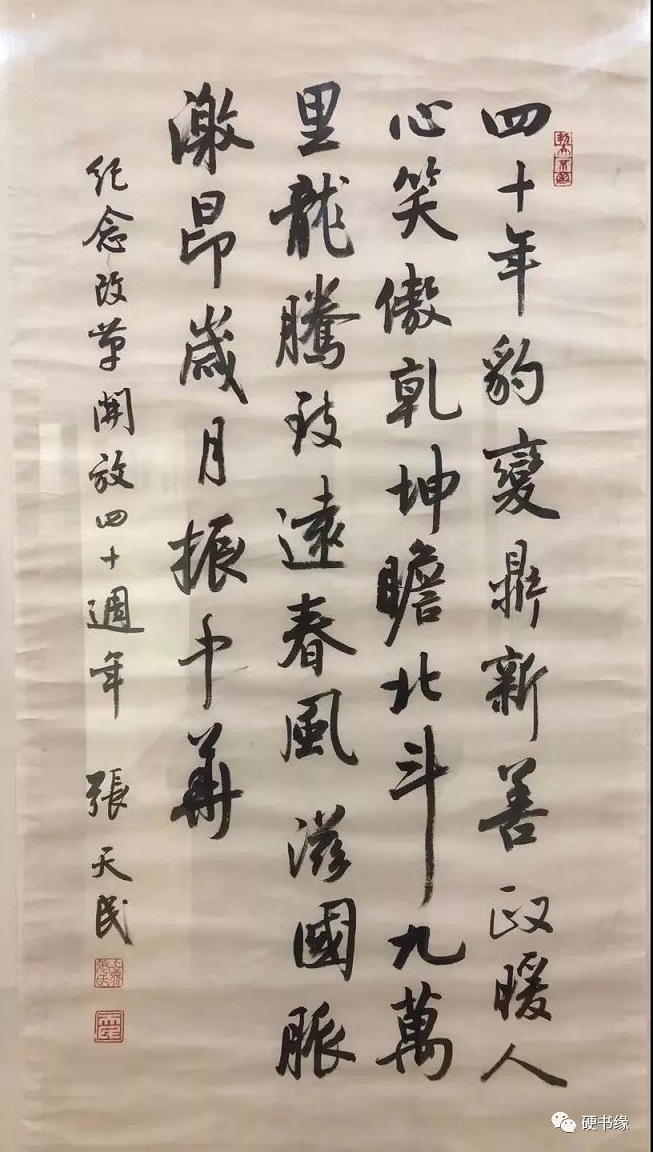 四十年豹變鼎新善政暖人
心笑傲乾坤瞻北斗九萬
里龍騰致遠春風滋國脈
激昂歲月振中華
紀念改革開放四十週年 張天民
硬书缘